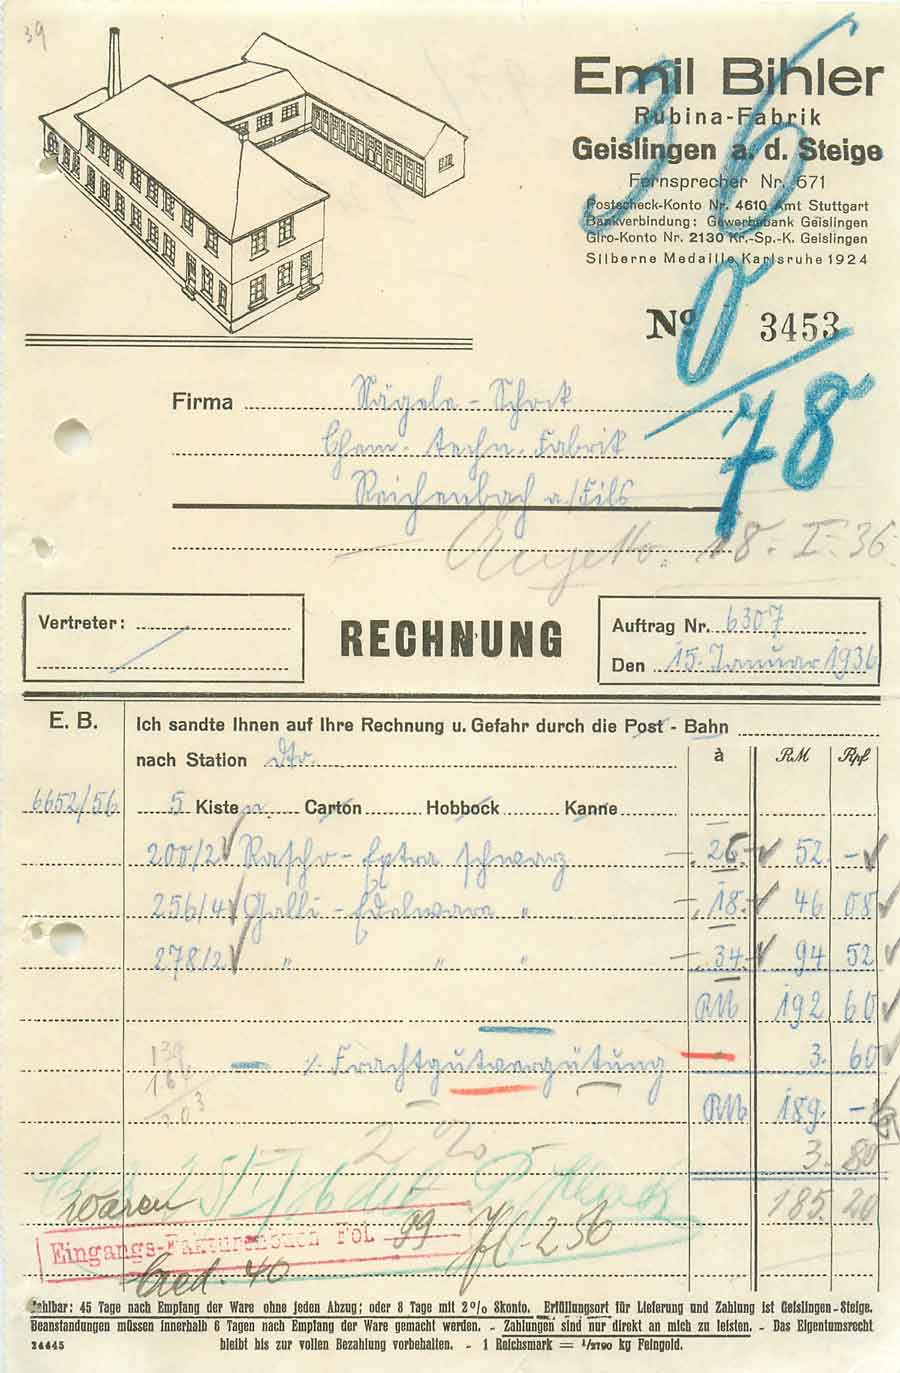 39
Emil Bihler
Rubina-Fabrik
Geislingen a. d. Steige
Fernsprecher Nr. 671
Postscheck-Konto Nr. 4610 Amt Stuttgart
Bankverbindung: Gewerbebank Geislingen
Giro-Konto Nr. 2130 Kr.-Sp.-K. Geislingen
Silberne Medaille Karlsruhe 1924
36
0
78
No 3453
Firma Nägele-Schock
Chem. techn. Fabrik
Reichenbach a/Fils
18. I. 36
Vertreter:
RECHNUNG
Auftrag Nr. 6307
Den 15. Januar 1936
E. B.
Ich sandte Ihnen auf Ihre Rechnung u. Gefahr durch die Post - Bahn
nach Station dto. à RM Rpf
6652/56 5 Kisten Carton Hobbock Kanne
200/2 Rascho-Extra schwarz 26.- 52 -
256/4 Galli-Edelware " 18.- 46 08
278/2 " " " 34.- 94 52
RM 192 60
% Frachtgutvergütung 3. 60
RM 189. -
2 % 3. 80
185. 20
Waren
Eingangs-Fakturenbuch Fol. 99
40
Zahlbar: 45 Tage nach Empfang der Ware ohne jeden Abzug; oder 8 Tage mit 2% Skonto. Erfüllungsort für Lieferung und Zahlung ist Geislingen-Steige.
Beanstandungen müssen innerhalb 6 Tagen nach Empfang der Ware gemacht werden. - Zahlungen sind nur direkt an mich zu leisten. - Das Eigentumsrecht
24445 bleibt bis zur vollen Bezahlung vorbehalten. - 1 Reichsmark = 1/2790 kg Feingold.